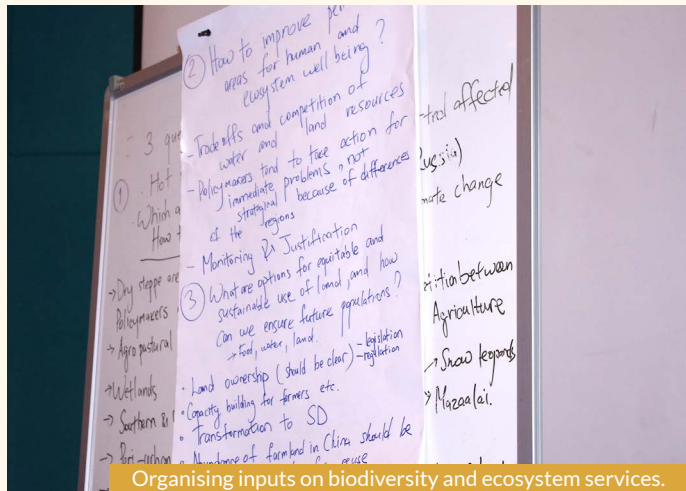 ② How to improve
areas for human and
ecosystem well being?
- Tradeoffs and competition of
water and land resources
- Policymakers tend to take action for
immediate problems, not
strategical because of differences
of the regions
- Monitoring & Justification
③ What are options for equitable and
sustainable use of land, and how
can we ensure future populations?
→ Food, water, land.
• Land ownership (should be clear) - legislation
- regulation
• Capacity building for farmers etc.
• Transformation to SD
• Abundance of farmland in China should be
3
①
Hot
Which
How
→ Dry steppe
Policymakers
→ Agro pastoral
→ Wetlands
→ Southern
→ Peri-urban
affected
change
between
Agriculture
→ Snow leopards
→ Mazaalai.
Organising inputs on biodiversity and ecosystem services.